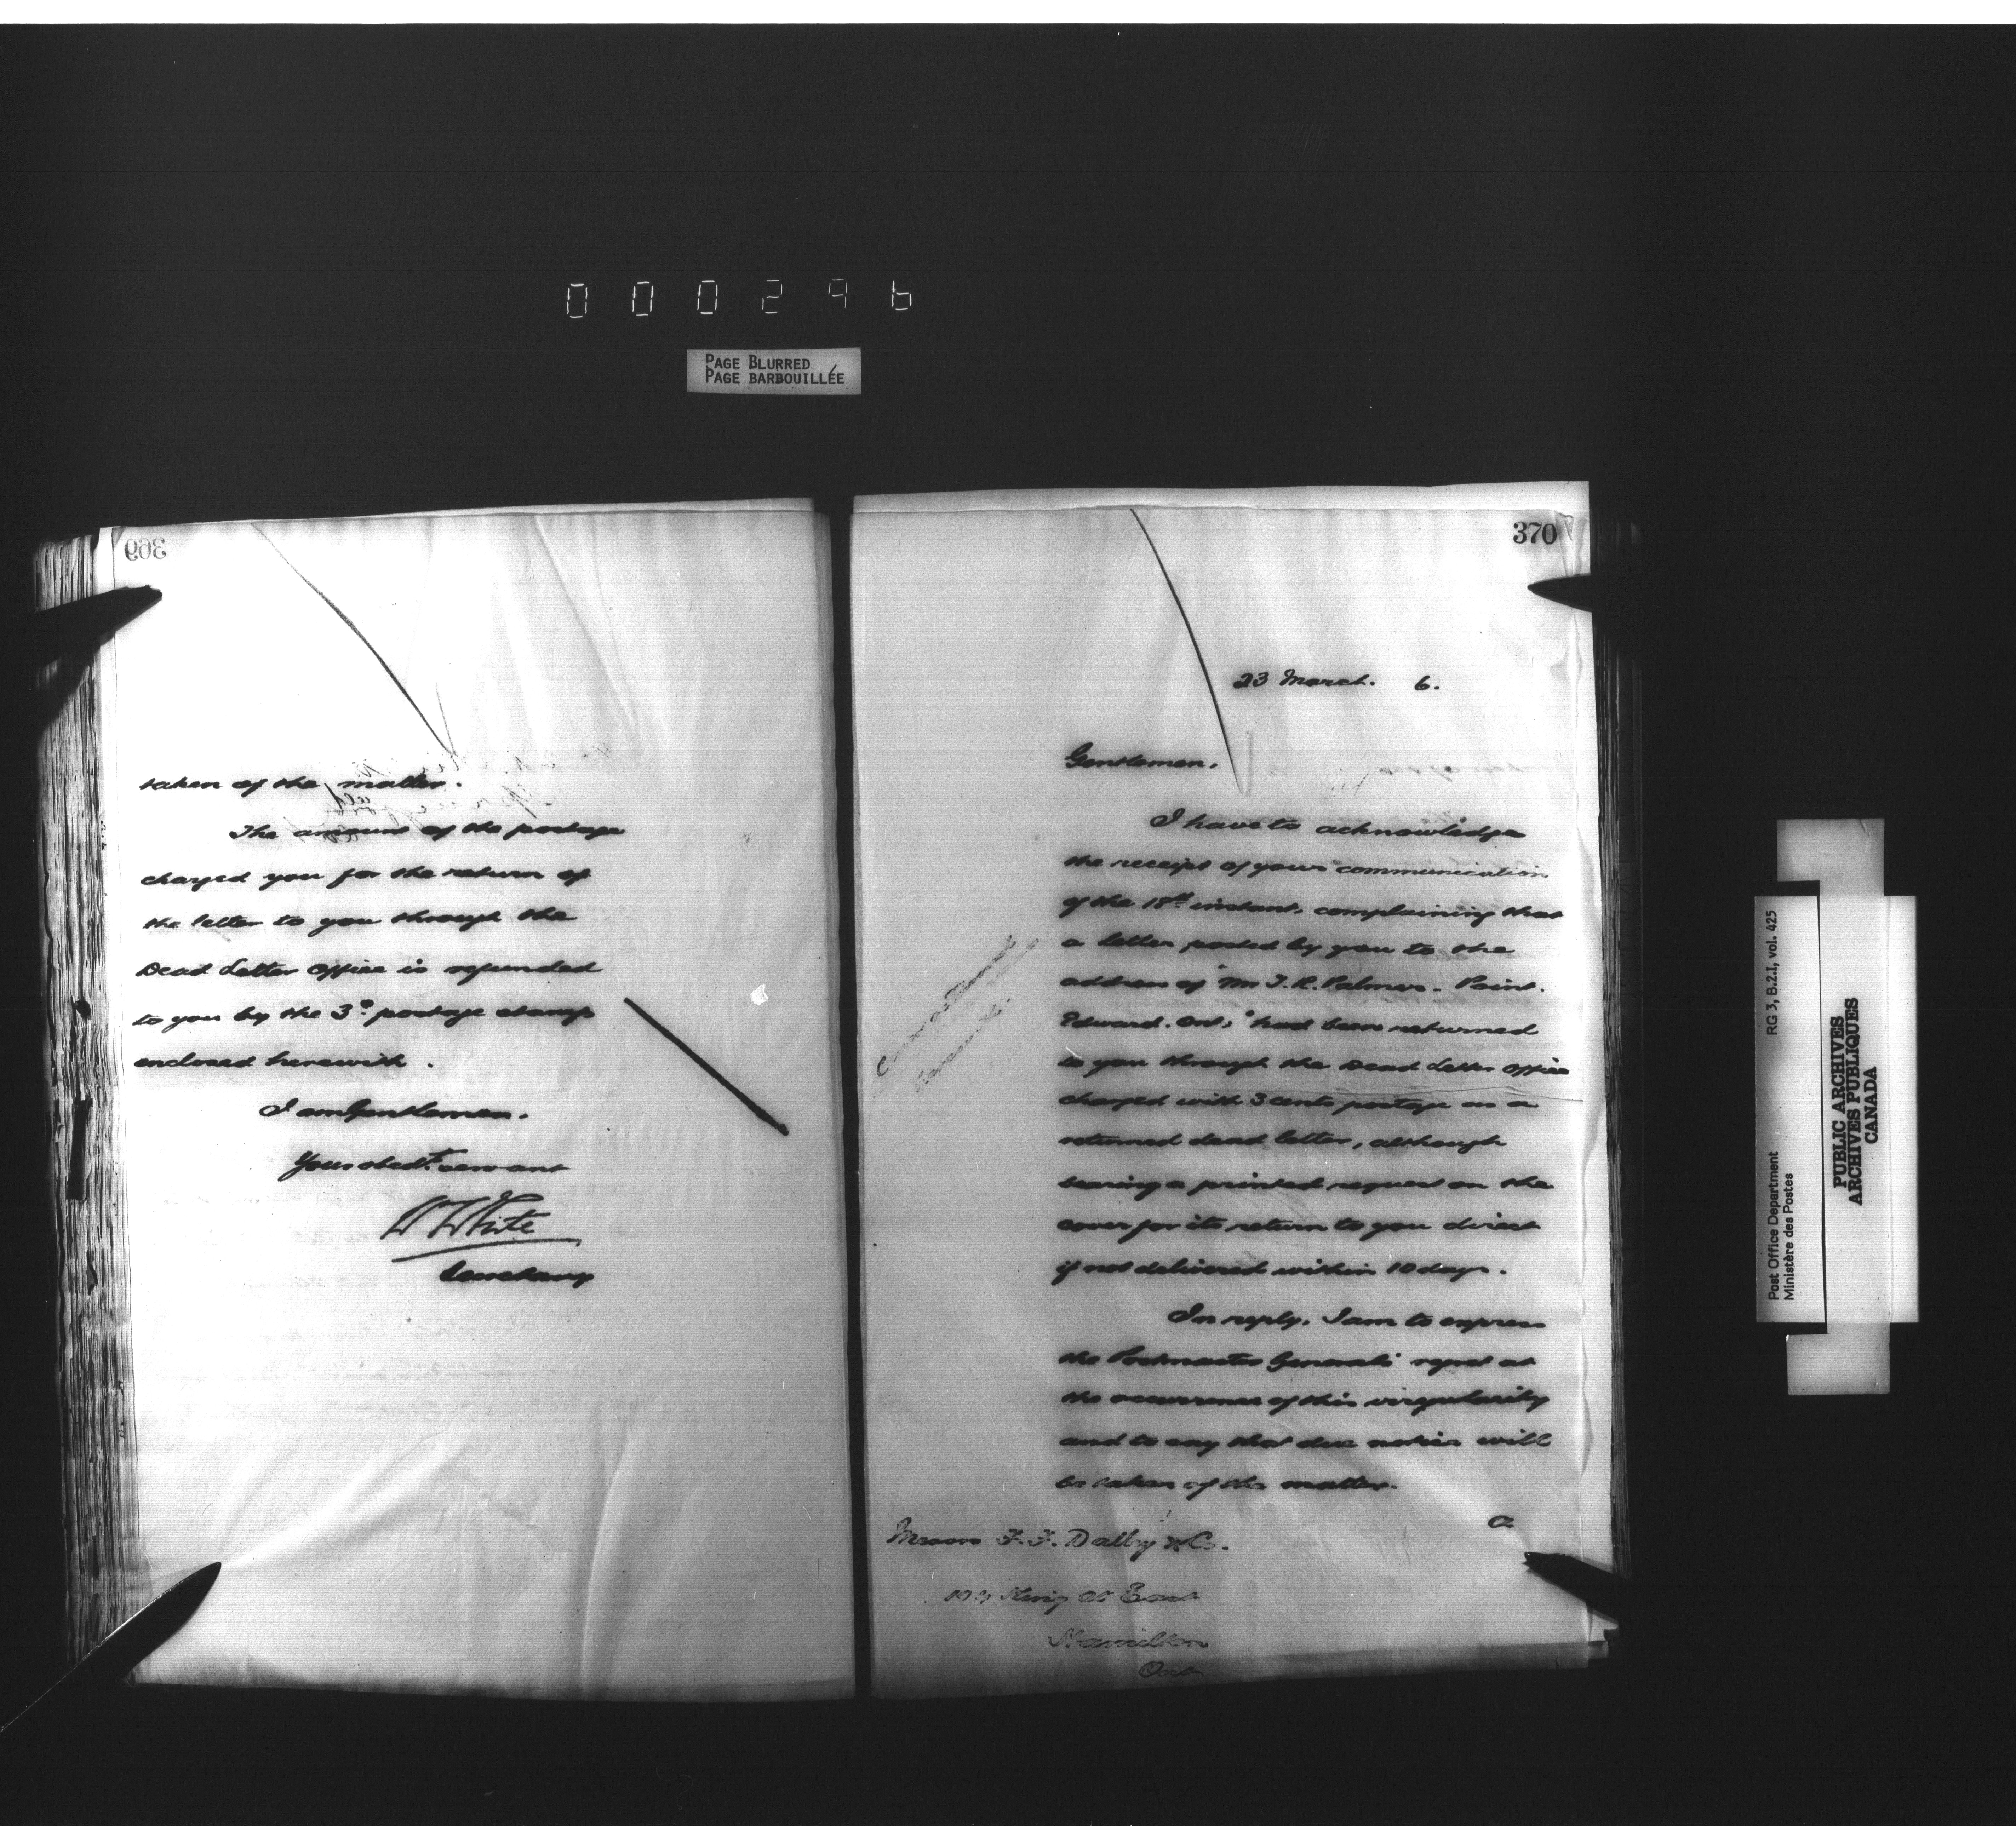 000296
PAGE BLURRED
PAGE BARBOUILLÉE
369
taken of the matter.
The amount of the postage
charged you for the return of
the letter to you through the
Dead Letter Office is refunded
to you by the 3c postage stamp
enclosed herewith.
I am Gentlemen.
Your obedt. servant
W White
Secretary
370
23 March. 6.
Gentlemen,
I have to acknowledge
the receipt of your communication
of the 18th instant, complaining that
a letter posted by you to the
address of "Mr J. R. Palmer - Point.
Edward. Ont," had been returned
to you through the Dead Letter Office
charged with 3 cents postage as a
returned dead letter, although
bearing a printed request on the
cover for its return to you direct
if not delivered within 10 days.
In reply, I am to express
the Postmaster General's regret at
the occurrence of this irregularity
and to say that due notice will
be taken of the matter.
a
Messrs F. F. Dalley & Co.
King St East
Hamilton
Ont
RG 3, B.2.1, vol. 425
Post Office Department
Ministère des Postes
PUBLIC ARCHIVES
ARCHIVES PUBLIQUES
CANADA